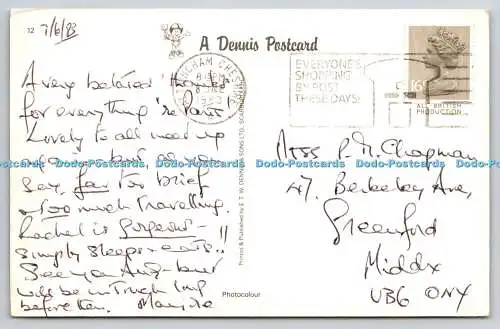 12 7/6/83
A Dennis Postcard
ALTRINCHAM CHESHIRE
8 PM
1983
EVERYONE'S
SHOPPING
BY POST
THESE DAYS!
16
ALL BRITISH
PRODUCTION
A very belated "thanks"
for everything re Paris
Lovely to all meet up
say, far too brief
& too much travelling.
Rachel is gorgeous - !!
simply sleeps & eats!!
See you Aug - but
will be in touch long
before then.
Miss P. M. Chapman
47, Berkeley Ave,
Greenford
Middx
UB6 0NY
Printed & Published by E. T. W. DENNIS & SONS LTD. SCARBOROUGH
Photocolour
Postcards www.Postcards www.Postcards www.Postcards www.Postcards www.Postcards